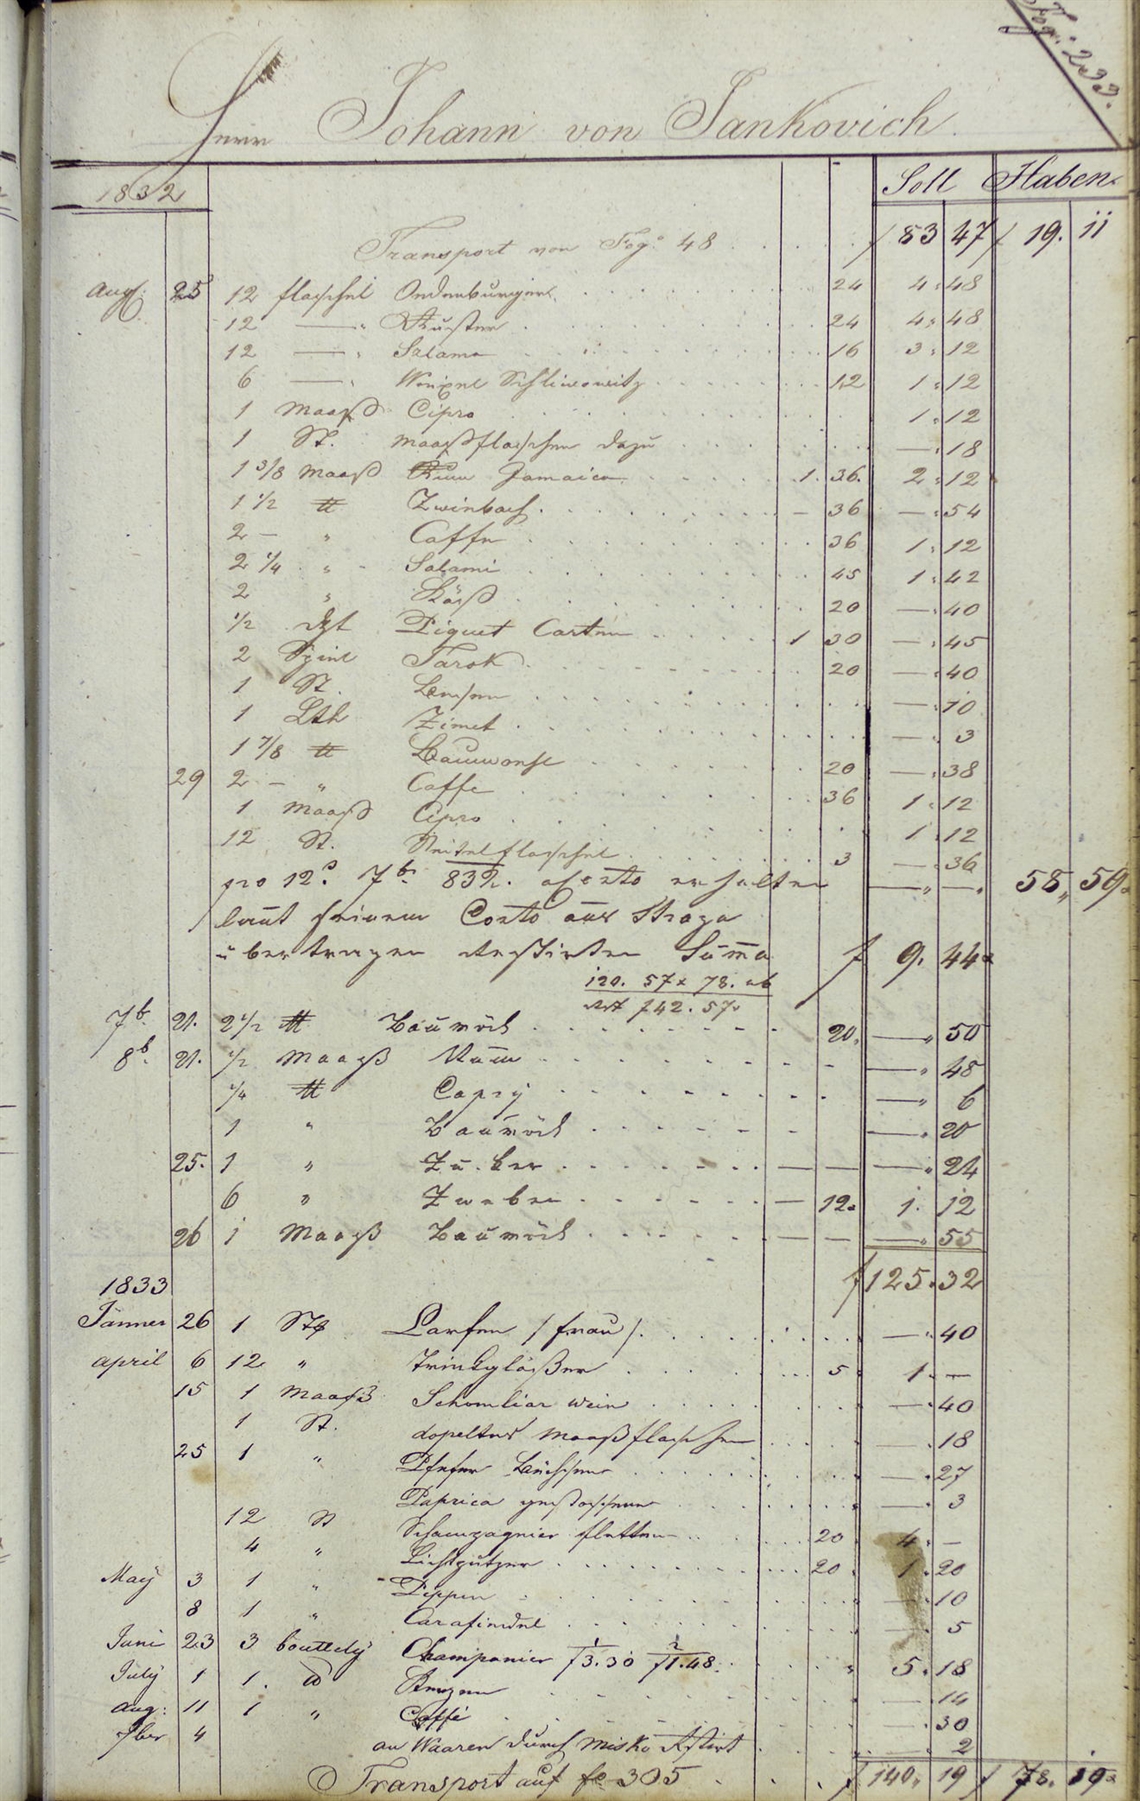 Fog: 233.
Herr Johann von Jankovich.
1832 Soll Haben
Transport von Fog: 48 . . . f 83 47 f 19. 11
Aug: 25 12 flaschel Oedenburger 24 4. 48
12 — " Ruster 24 4. 48
12 — " Salamo 16 3. 12
6 — " Schliwowitz 12 1. 12
1 Maaß Cipro 1. 12
1 St. Maaßflaschen dazu — 18
1 3/8 Maaß Rum Jamaica 1. 36. 2. 12
1 1/2 ℔ Zwieback — 36 — 54
2 — " Caffe 36 1. 12
2 1/4 " Salami 45 1. 42
2 " Käß 20 — 40
1/2 Piquet Carten 1 30 — 45
2 Spiel Tarok 20 — 40
1 St. — 10
1 Lth Zimet — 3
1 7/8 ℔ 20 — 38
29 2 — " Caffe 36 1. 12
1 Maaß Cipro 1. 12
12 St. Seitelflaschel 3 — 36
pro 12. 7br 832. a Conto erhalten — — 58. 59
laut seinem Conto aus Straza
übertragen Summa f 9. 44
120. 57x 78. ab
Rest f 42. 57
7b. 21. 2 1/2 ℔ Baumöhl 20. — 50
8b. 21. 1/2 Maaß Rum — 48
1/4 ℔ Capry — 6
1 " Baumöhl — 20
25. 1 " Zuker — — — 24
6 " Zweben — 12. 1. 12
26 1 Maaß Baumöhl — — — 55
f 125. 32
1833
Jänner 26 1 Stk Larfen / frau /. — 40
april 6 12 " Trinkgläßer 5 1. —
15 1 Maaß Schomliar wein — 40
1 St. dopeltes Maaßflaschen — 18
25 1 " Pfefer — 27
Paprica gestossener — 3
12 St 20 4. —
4 " Lichtputzer 20 1. 20
May 3 1 " — 10
8 1 " Carafindel — 5
Juni 23 3 bouttely Champanier 1 f 3. 30 2 f 1. 48. 5. 18
July 1 1. ℔ — 14
Aug: 11 1 " Caffé — 30
4 an Waaren durch Misko — 2
Transport auf fo 305 . . . f 140. 19 f 78. 10